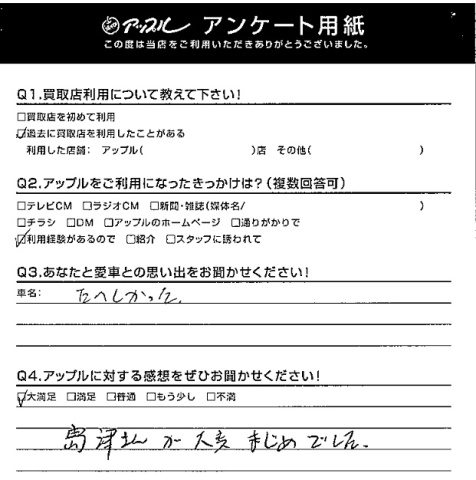 アップル アンケート用紙
この度は当店をご利用いただきありがとうございました。
Q1.買取店利用について教えて下さい!
□買取店を初めて利用
☑過去に買取店を利用したことがある
利用した店舗: アップル( )店 その他( )
Q2.アップルをご利用になったきっかけは?(複数回答可)
□テレビCM □ラジオCM □新聞・雑誌(媒体名/ )
□チラシ □DM □アップルのホームページ □通りがかりで
☑利用経験があるので □紹介 □スタッフに誘われて
Q3.あなたと愛車との思い出をお聞かせください!
車名: たのしかった.
Q4.アップルに対する感想をぜひお聞かせください!
☑大満足 □満足 □普通 □もう少し □不満
島津さんが大変まじめでした.